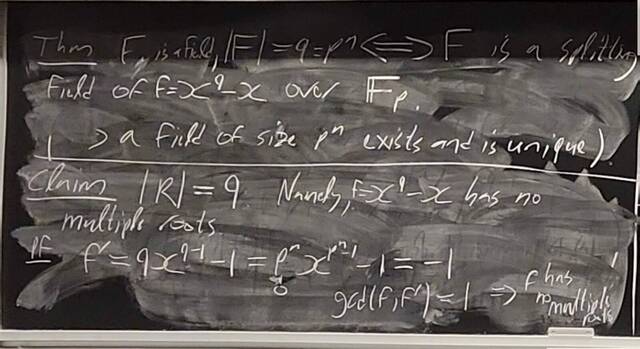 Thm F is a field, |F| = q = pⁿ ⟺ F is a splitting
field of f = x^q - x over 𝔽p.
(→ a field of size pⁿ exists and is unique).
Claim |R| = q. Namely, f = x^q - x has no
multiple roots.
Pf f' = qx^{q-1} - 1 = pⁿ x^{pⁿ-1} - 1 = -1
0
gcd(f, f') = 1 ⇒ f has no multiple roots